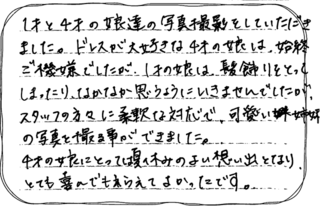 1才と4才の娘達の写真撮影をしていただき
ました。ドレスが大好きな4才の娘は、始終
ご機嫌でしたが、1才の娘は、髪飾りをとって
しまったり、なかなか思うようにいきませんでしたが、
スタッフの方々に柔軟な対応で、可愛い姉妹
の写真を撮る事ができました。
4才の娘にとっては夏休みのよい想い出となり、
とても喜んでもらえてよかったです。